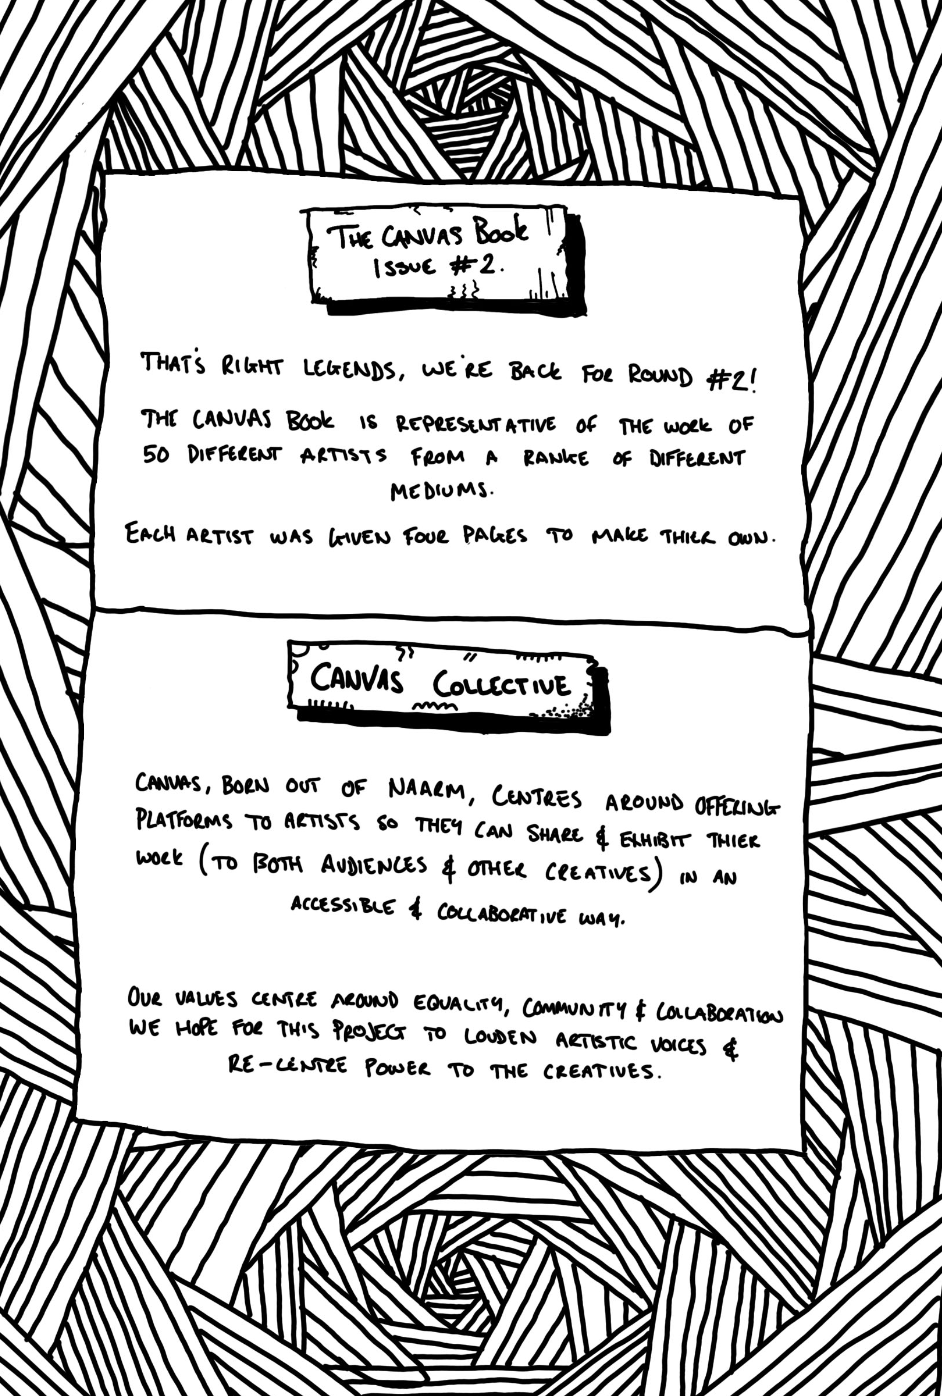 THE CANVAS BOOK
ISSUE #2.
THAT'S RIGHT LEGENDS, WE'RE BACK FOR ROUND #2!
THE CANVAS BOOK IS REPRESENTATIVE OF THE WORK OF
50 DIFFERENT ARTISTS FROM A RANGE OF DIFFERENT
MEDIUMS.
EACH ARTIST WAS GIVEN FOUR PAGES TO MAKE THIER OWN.
CANVAS COLLECTIVE
CANVAS, BORN OUT OF NAARM, CENTRES AROUND OFFERING
PLATFORMS TO ARTISTS SO THEY CAN SHARE & EXHIBIT THIER
WORK (TO BOTH AUDIENCES & OTHER CREATIVES) IN AN
ACCESSIBLE & COLLABORATIVE WAY.
OUR VALUES CENTRE AROUND EQUALITY, COMMUNITY & COLLABORATION
WE HOPE FOR THIS PROJECT TO LOUDEN ARTISTIC VOICES &
RE-CENTRE POWER TO THE CREATIVES.